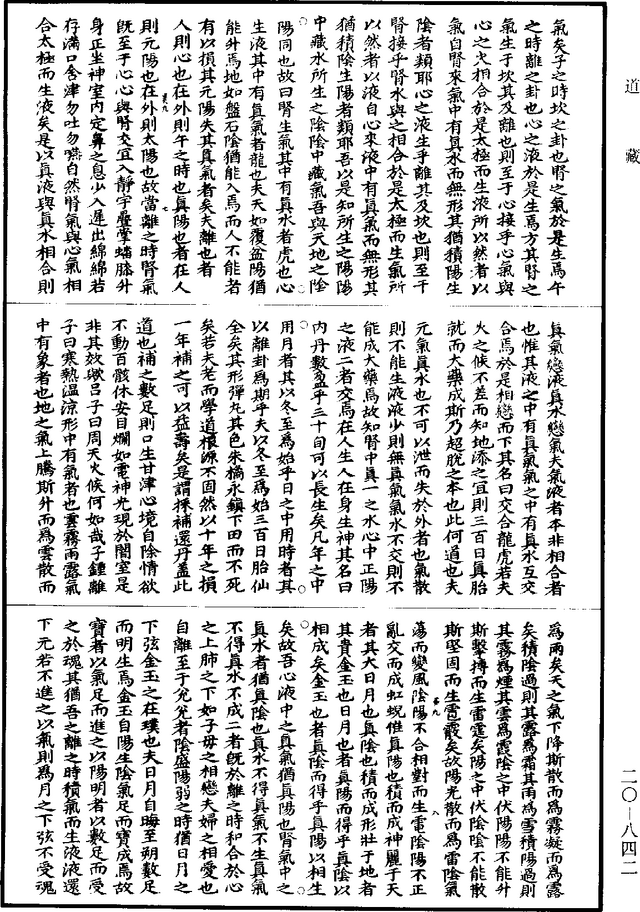 道藏
氣矣子之時坎之卦也腎之氣於是生焉午
之時離之卦也心之液於是生焉方其腎之
氣生于坎其及離也則至于心接乎心氣與
心之火相合於是太極而生液所以然者以
氣自腎來氣中有真水而無形其猶積陽生
陰者類耶心之液生乎離其及坎也則至于
腎接乎腎水與之相合於是太極而生氣所
以然者以液自心來液中有真氣而無形其
猶積陰生陽者類耶吾以是知所生之陽陽
中藏水所生之陰陰中藏氣吾與天地之陰
陽同也故曰腎生氣其中有真水者虎也心
生液其中有真氣者龍也夫天如覆盆陽猶
能升焉地如盤石陰猶能入焉而人不能者
有以損其元陽失其真氣者矣夫離也者
人則心也在外則午之時也真陽也者在人
則元陽也在外則太陽也故當離之時腎氣
既至于心心與腎交宜入靜宇疊掌蟠膝升
身正坐神室內定鼻之息少入遲出綿綿若
存滿口含津勿吐勿嚥自然腎氣與心氣相
合太極而生液矣是以真液與真水相合則
真氣戀液真水戀氣夫氣液者本非相合者
也惟其液之中有真氣氣之中有真水互交
合焉於是相戀而下其名曰交合龍虎若夫
火之候不差而知地添之宜則三百日真胎
就而大藥成斯乃超脫之本也此何道也夫
元氣真水也不可以泄而失於外者也氣散
則不能生液液少則無真氣氣水不交則不
能成大藥焉故知腎中真一之水心中正陽
之液二者交焉在人生人在身生神其名曰
內丹數盈乎三十旬可以長生矣凡年之中
用月者其以冬至為始乎日之中用時者其
以離卦為期乎夫以冬至為始三百日胎仙
全矣其形彈丸其色朱橘永鎮下田而不死
矣若夫老而學道根源不固然以十年之損
一年補之可以益壽矣是謂採補還丹蓋此
道也補之數足則口生甘津心境自除情欲
不動百骸休安目爛如電神光現於闇室是
非其效歟呂子曰周天火候何如哉子鍾離
子曰寒熱溫涼形中有氣者也雲霧雨露氣
中有象者也地之氣上騰斯升而為雲散而
為雨矣天之氣下降斯散而為霧凝而為露
矣積陰過則其露為霜其雨為雪積陽過則
其霧為煙其雲為霞陰之中伏陽陽不能升
斯擊搏而生雷霆矣陽之中伏陰陰不能散
斯堅固而生雹霰矣故陽光散而為雷陰氣
蕩而變風陰陽不合相對而生電陰陽不正
亂交而成虹蜺惟真陽也積而成神麗于天
者其大日月也真陰也積而成形壯于地者
其貴金玉也日月也者真陽而得乎真陰以
相成矣金玉也者真陰而得乎真陽以相生
矣故吾心液中之真氣猶真陽也腎氣中之
真水者猶真陰也真水不得真氣不生真氣
不得真水不成二者既於離之時和合於心
之上肺之下如子母之相戀夫婦之相愛也
自離至于兌兌者陰盛陽弱之時猶日月之
下弦金玉之在璞也夫日月自晦至朔數足
而明生焉金玉自陽生陰氣足而寶成焉故
寶者以氣足而進之以陽明者以數足而受
之於魂其猶吾之離之時積氣而生液液還
下元若不進之以氣則為月之下弦不受魂
二〇—八四二